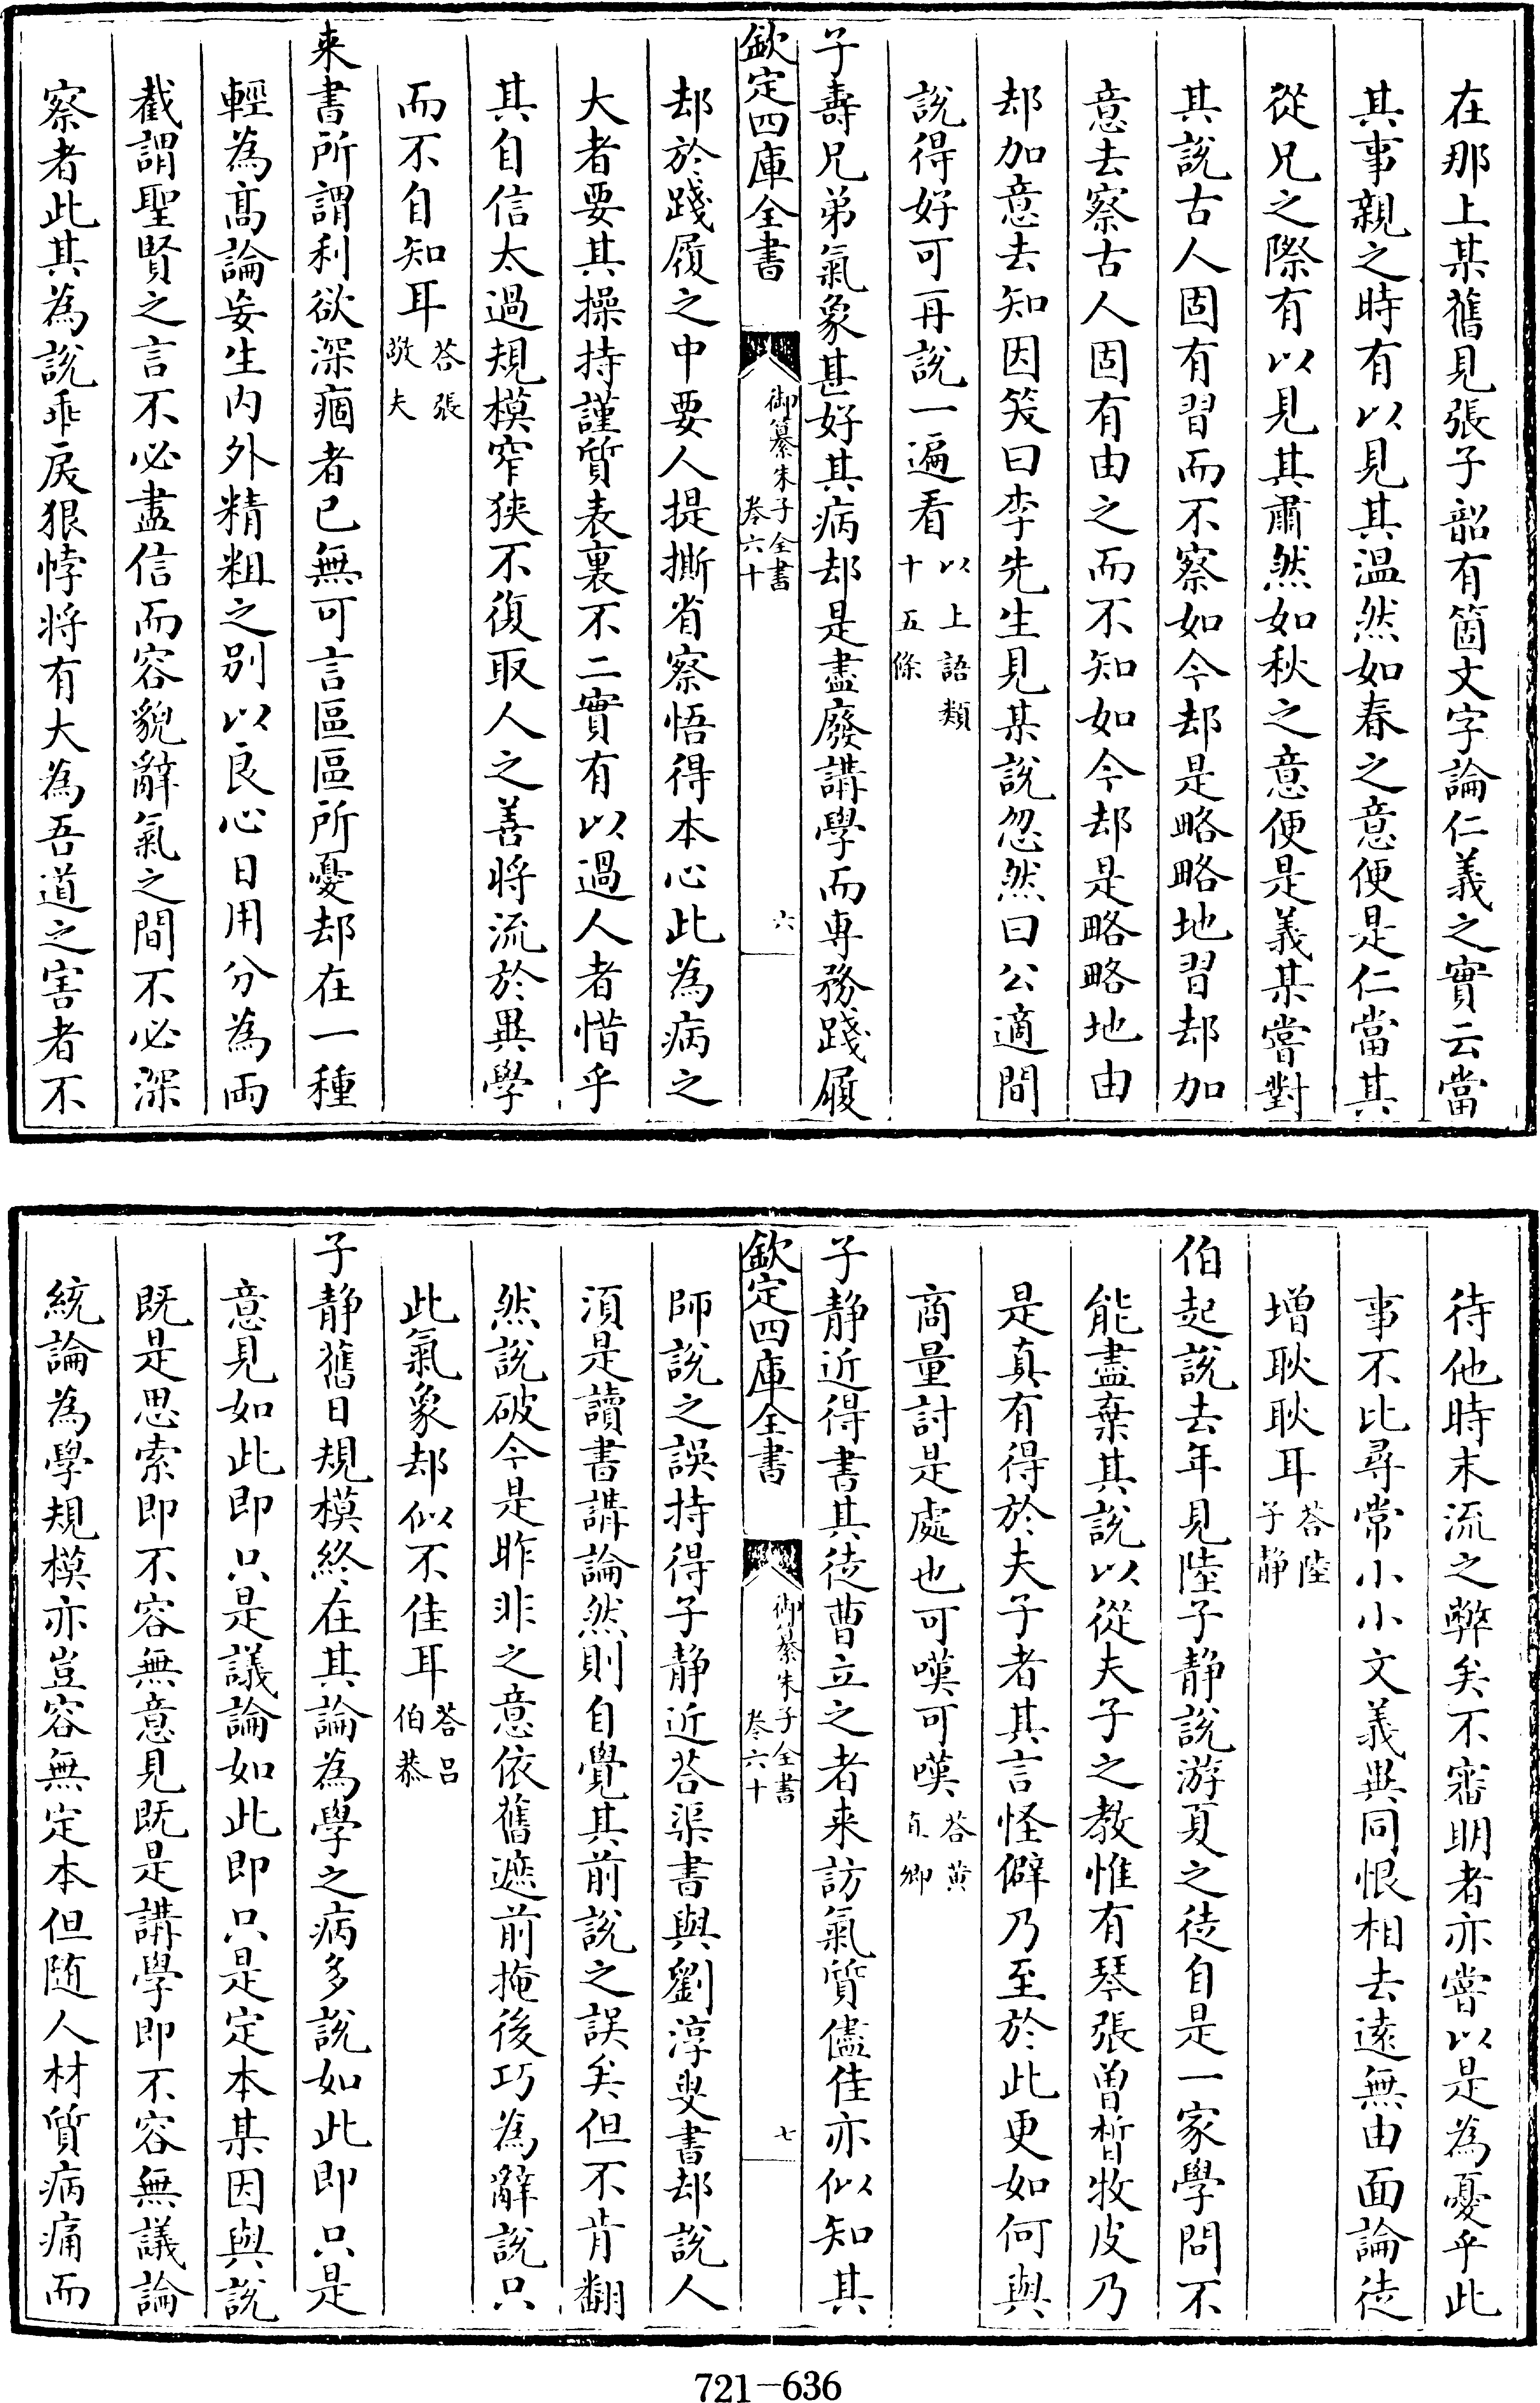 在那上某舊見張子韶有箇文字論仁義之實云當
其事親之時有以見其温然如春之意便是仁當其
從兄之際有以見其肅然如秋之意便是義某嘗對
其說古人固有習而不察如今却是略略地習却加
意去察古人固有由之而不知如今却是略略地由
却加意去知因笑曰李先生見某說忽然曰公適間
說得好可再說一遍看以上語類十五條
子壽兄弟氣象甚好其病却是盡廢講學而專務踐履
欽定四庫全書 御纂朱子全書卷六十 六
却於踐履之中要人提撕省察悟得本心此為病之
大者要其操持謹質表裏不二實有以過人者惜乎
其自信太過規模窄狹不復取人之善將流於異學
而不自知耳荅張敬夫
来書所謂利欲深痼者已無可言區區所憂却在一種
輕為高論妄生内外精粗之别以良心日用分為兩
截謂聖賢之言不必盡信而容貌辭氣之間不必深
察者此其為說乖戾狠悖將有大為吾道之害者不
待他時末流之弊矣不審明者亦嘗以是為憂乎此
事不比尋常小小文義異同恨相去遠無由面論徒
增耿耿耳荅陸子静
伯起說去年見陸子静說游夏之徒自是一家學問不
能盡棄其說以從夫子之教惟有琴張曽晳牧皮乃
是真有得於夫子者其言怪僻乃至於此更如何與
商量討是處也可嘆可嘆荅黄直卿
子静近得書其徒曹立之者来訪氣質儘佳亦似知其
欽定四庫全書 御纂朱子全書卷六十 七
師說之誤持得子静近荅渠書與劉淳叟書却說人
須是讀書講論然則自覺其前說之誤矣但不肯翻
然說破今是昨非之意依舊遮前掩後巧為辭說只
此氣象却似不佳耳荅吕伯恭
子静舊日規模終在其論為學之病多說如此即只是
意見如此即只是議論如此即只是定本某因與說
既是思索即不容無意見既是講學即不容無議論
統論為學規模亦豈容無定本但随人材質病痛而
721-636